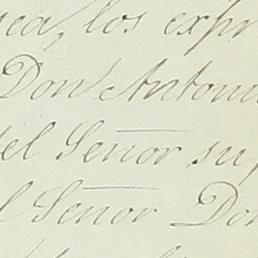 los expr
Don Antoni
el Señor su
Señor Don